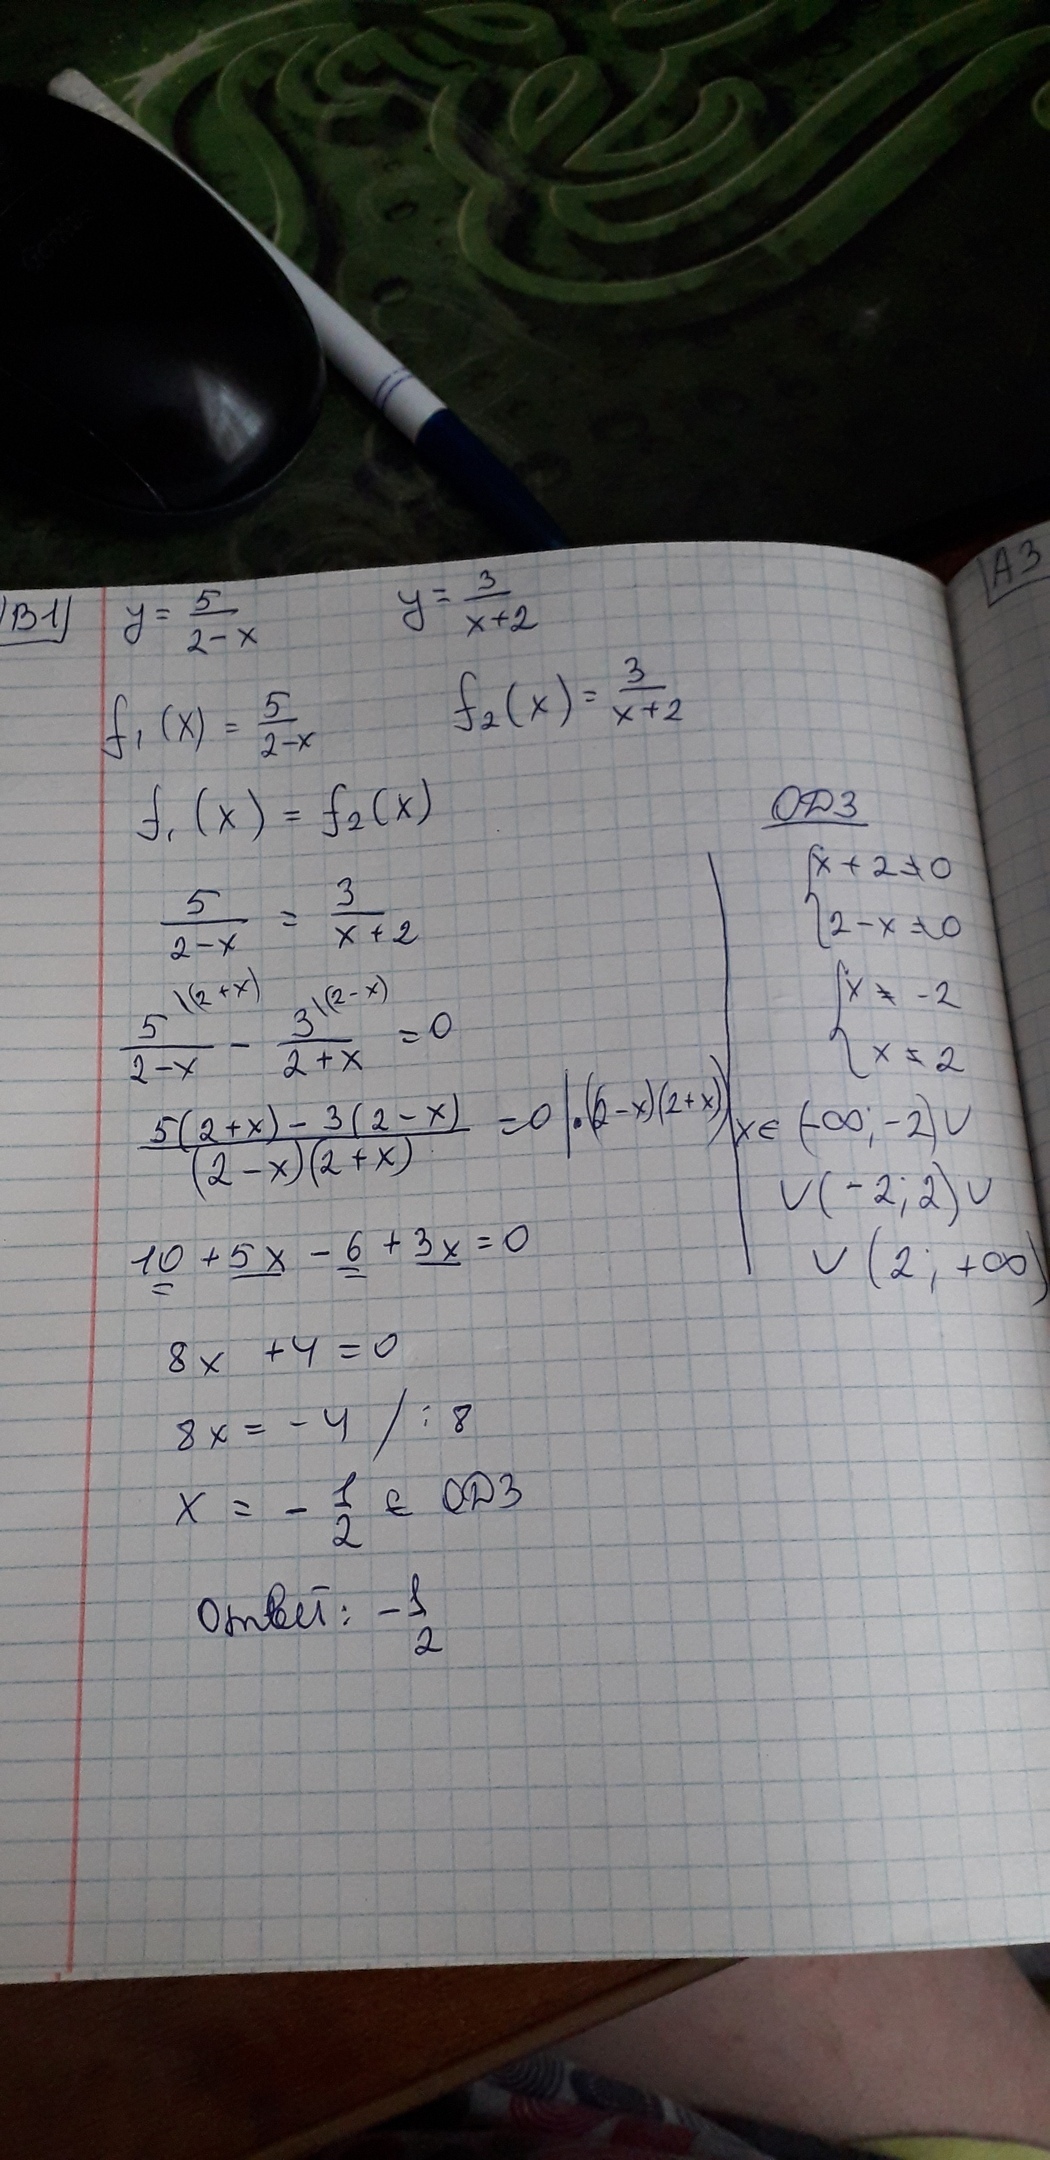 B1 y = 5/(2-x) y = 3/(x+2)
A3
f₁(x) = 5/(2-x) f₂(x) = 3/(x+2)
f₁(x) = f₂(x)
5/(2-x) = 3/(x+2)
5\(2+x)/(2-x) - 3\(2-x)/(2+x) = 0
(5(2+x) - 3(2-x))/((2-x)(2+x)) = 0 | ·(2-x)(2+x)
10 + 5x - 6 + 3x = 0
8x + 4 = 0
8x = -4 / : 8
x = -1/2 ∈ ОДЗ
Ответ: -1/2
ОДЗ
{x + 2 ≠ 0
{2 - x ≠ 0
{x ≠ -2
{x ≠ 2
x ∈ (-∞; -2) ∪
∪ (-2; 2) ∪
∪ (2; +∞)